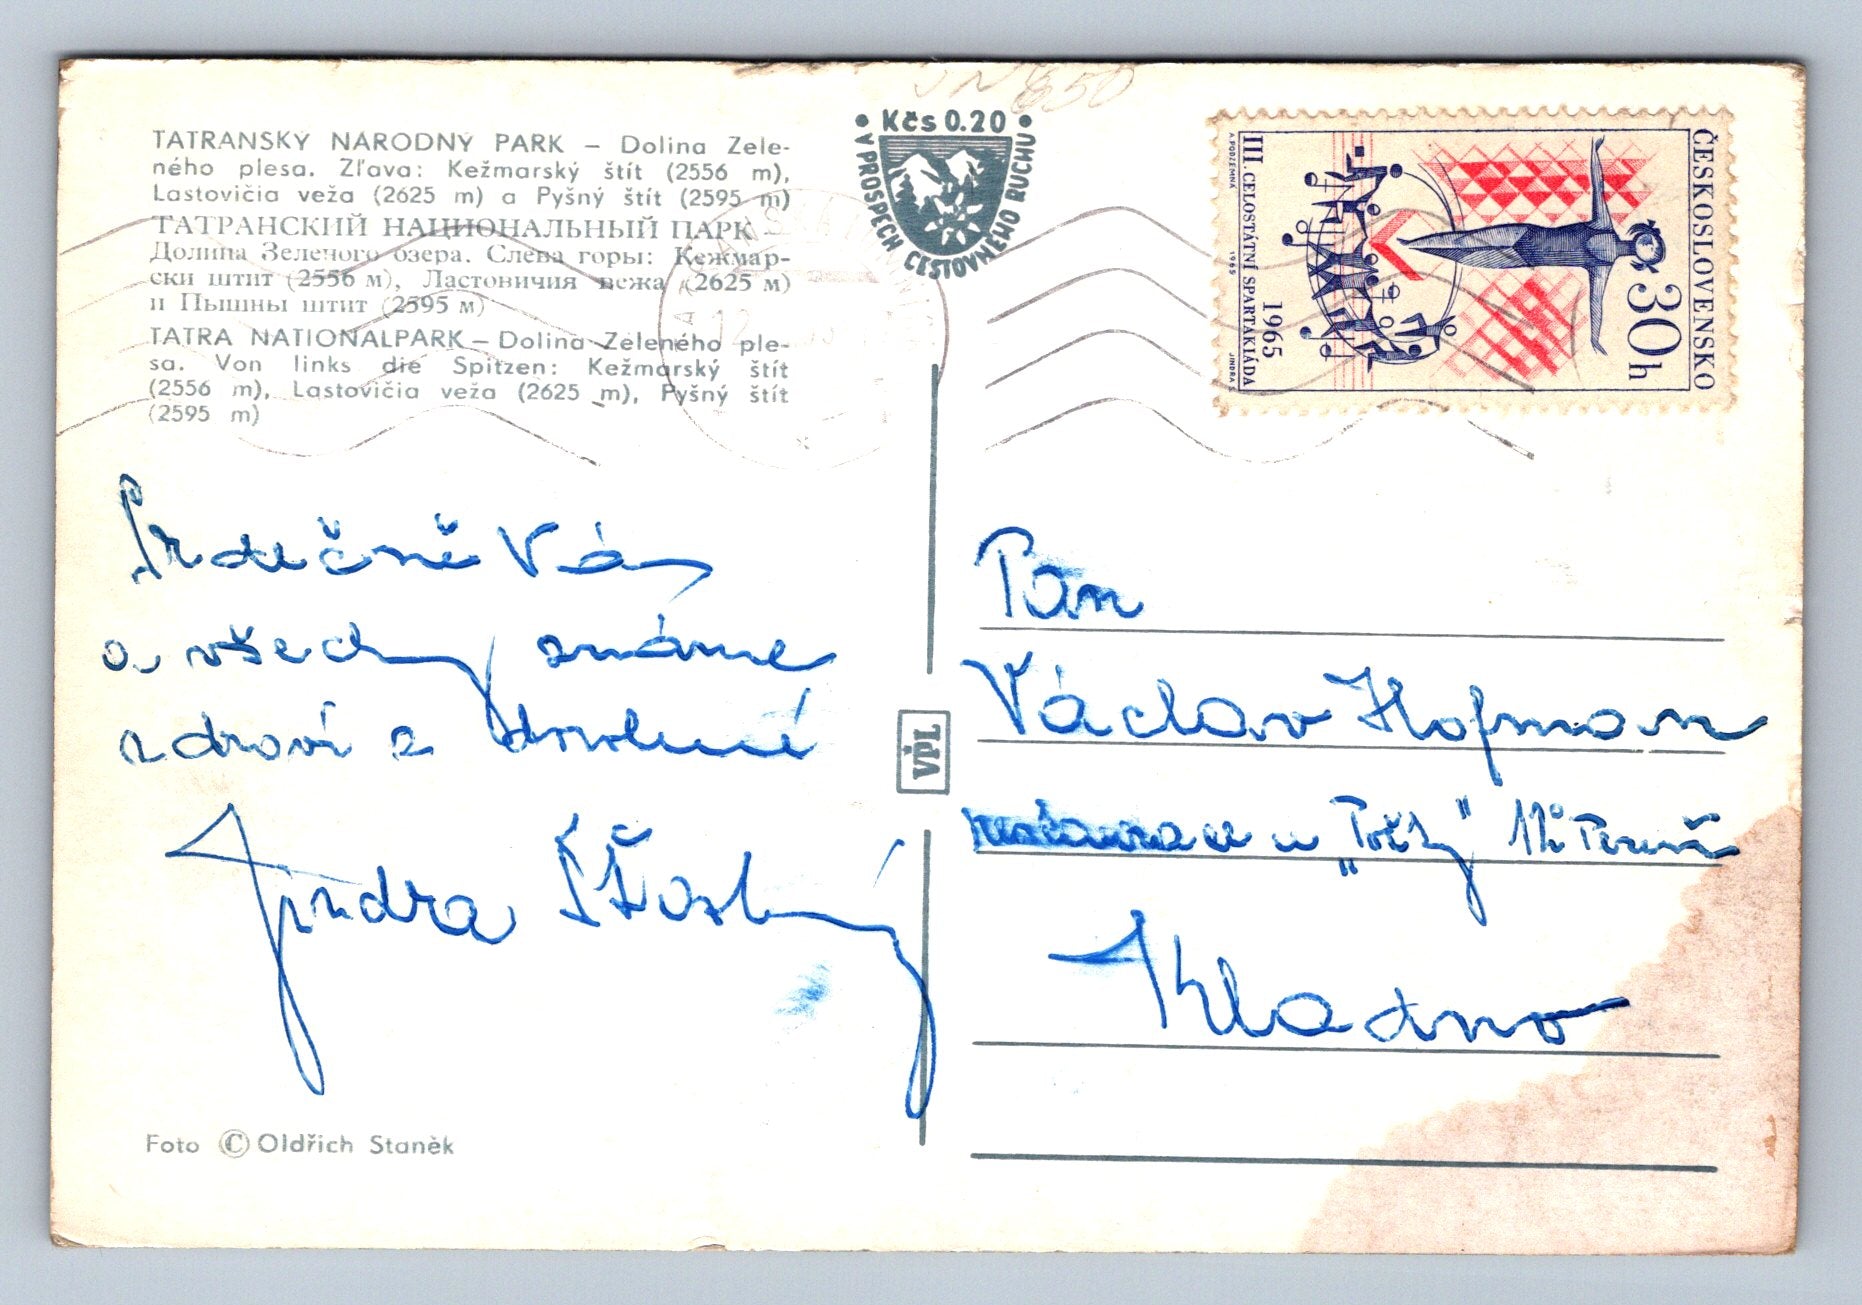 JN 650
TATRANSKÝ NÁRODNÝ PARK – Dolina Zele-
ného plesa. Zľava: Kežmarský štít (2556 m),
Lastovičia veža (2625 m) a Pyšný štít (2595 m)
ТАТРАНСКИЙ НАЦИОНАЛЬНЫЙ ПАРК –
Долина Зеленого озера. Слева горы: Кежмар-
ски штит (2556 м), Ластовичия вежа (2625 м)
и Пышны штит (2595 м)
TATRA NATIONALPARK – Dolina Zeleného ple-
sa. Von links die Spitzen: Kežmarský štít
(2556 m), Lastovičia veža (2625 m), Pyšný štít
(2595 m)
• Kčs 0.20 •
V PROSPECH CESTOVNÉHO RUCHU
ČESKOSLOVENSKO
30h
1965
III. CELOSTÁTNÍ SPARTAKIÁDA
A. PODZEMNÁ 1965 JINDRA S.
12
Srdečně Vás
a všechny známe
zdraví z dovolené
Jindra Šťastný
VPL
Pan
Václav Hofman
restaurace u
Kladno
Foto © Oldřich Staněk